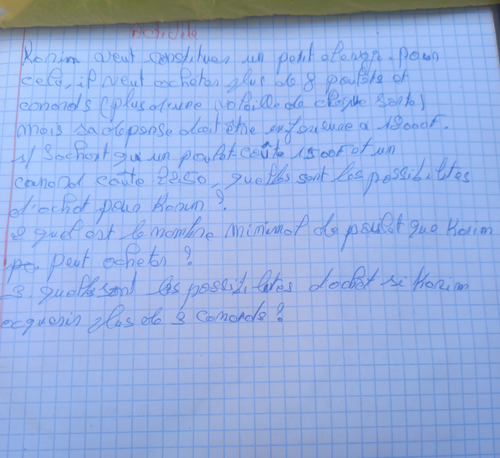 Activité
Karim veut constituer un petit élevage. Pour
cela, il veut acheter plus de 8 poulets et
canards (plus d'une volaille de chaque sorte)
mais sa dépense doit être inférieure à 18000F.
1/ Sachant qu'un poulet coûte 1500F et un
canard coûte 2250, quelles sont les possibilités
d'achat pour Karim ?
2 quel est le nombre minimal de poulet que Karim
peut acheter ?
3. quelles sont les possibilités d'achat si Karim
acquerir plus de 3 canards ?